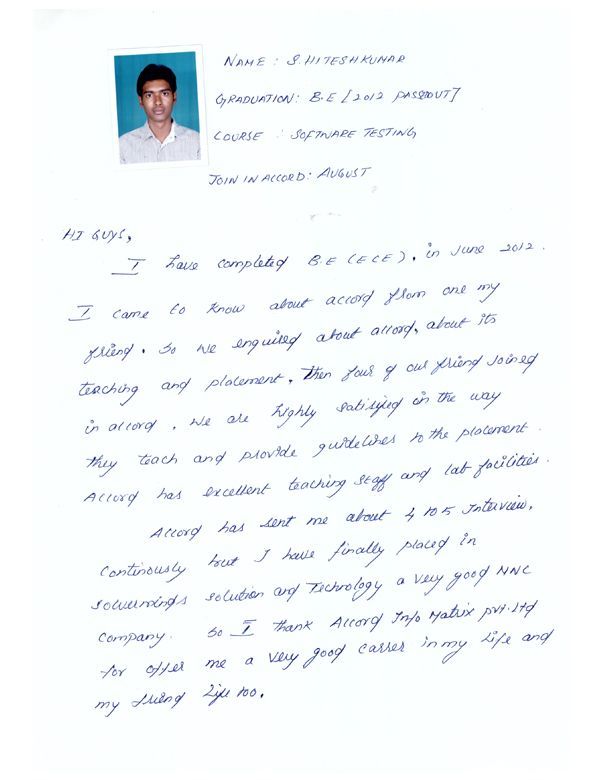 NAME : S. HITESHKUMAR
GRADUATION: B.E [2012 PASSOUT]
COURSE : SOFTWARE TESTING
JOIN IN ACCORD: AUGUST
HI GUYS,
I have completed B.E (ECE), in June 2012.
I came to know about accord from one my
friend. So we enquired about accord, about its
teaching and placement. Then four of our friend Joined
in accord. We are highly satisfied in the way
they teach and provide guidelines to the placement.
Accord has excellent teaching staff and lab facilities.
Accord has sent me about 4 to 5 Interview,
Continously but I have finally placed in
solverminds solution and Technology a very good MNC
Company. So I thank Accord Info Matrix pvt. ltd
for offer me a very good carrer in my life and
my friend life too.